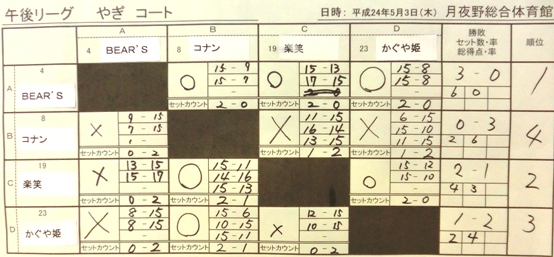 午後リーグ やぎ コート 日時: 平成24年5月3日(木) 月夜野総合体育館
A B C D 勝敗 セット数・率 総得点・率 順位
4 BEAR'S 8 コナン 19 楽笑 23 かぐや姫
A 4 BEAR'S
○ 15-9 15-7 - セットカウント 2-0
○ 15-13 17-15 セットカウント 2-0
○ 15-8 15-8 - セットカウント 2-0
3-0 6 0 1
B 8 コナン
× 9-15 7-15 - セットカウント 0-2
× 11-15 16-14 13-15 セットカウント 1-2
× 6-15 15-10 11-15 セットカウント 1-2
0-3 2 6 4
C 19 楽笑
× 13-15 15-17 - セットカウント 0-2
○ 15-11 14-16 15-13 セットカウント 2-1
○ 15-12 15-10 - セットカウント 2-0
2-1 4 3 2
D 23 かぐや姫
× 8-15 8-15 - セットカウント 0-2
○ 15-6 10-15 15-11 セットカウント 2-1
× 12-15 10-15 - セットカウント 0-2
1-2 2 4 3